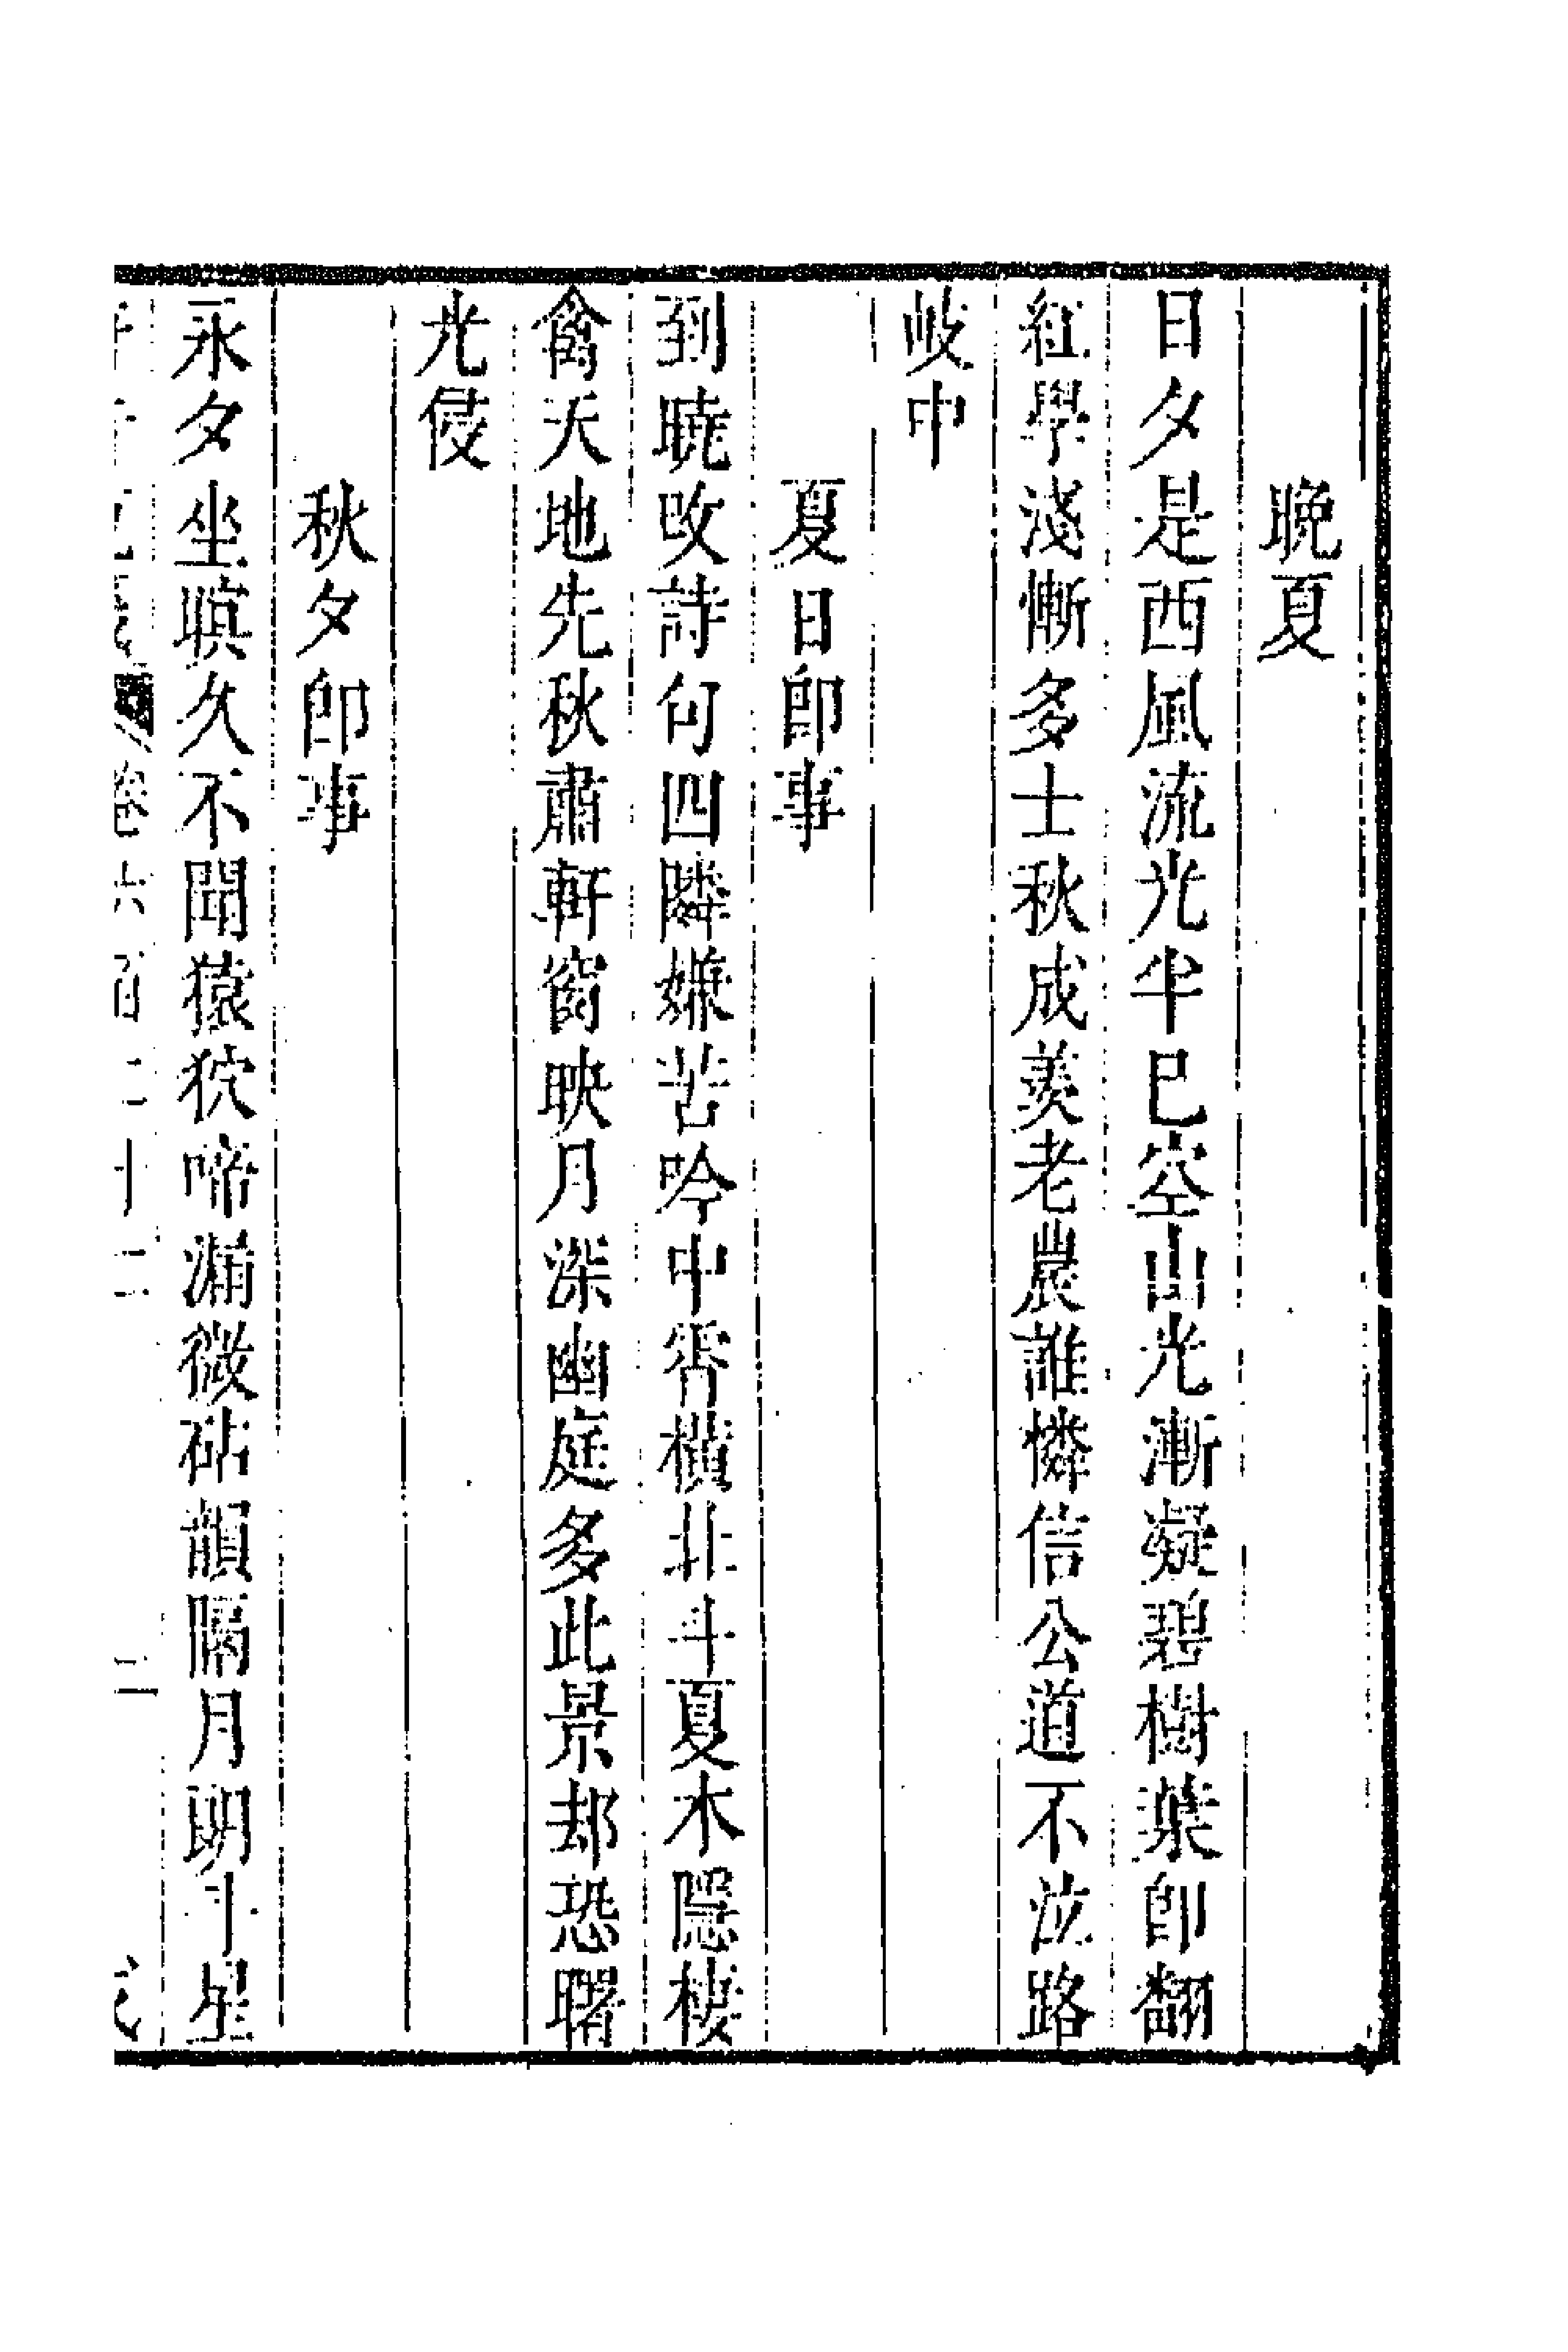 晚夏
日夕是西風流光半已空山光漸凝碧樹葉即翻
紅學淺慚多士秋成羨老農誰憐信公道不泣路
岐中
夏日即事
到曉改詩句四隣嫌苦吟中宵橫北斗夏木隱棲
禽天地先秋肅軒窗映月深幽庭多此景却恐曙
光侵
秋夕即事
永夕坐暝久不聞猿狖啼漏微砧韻隔月朗斗星